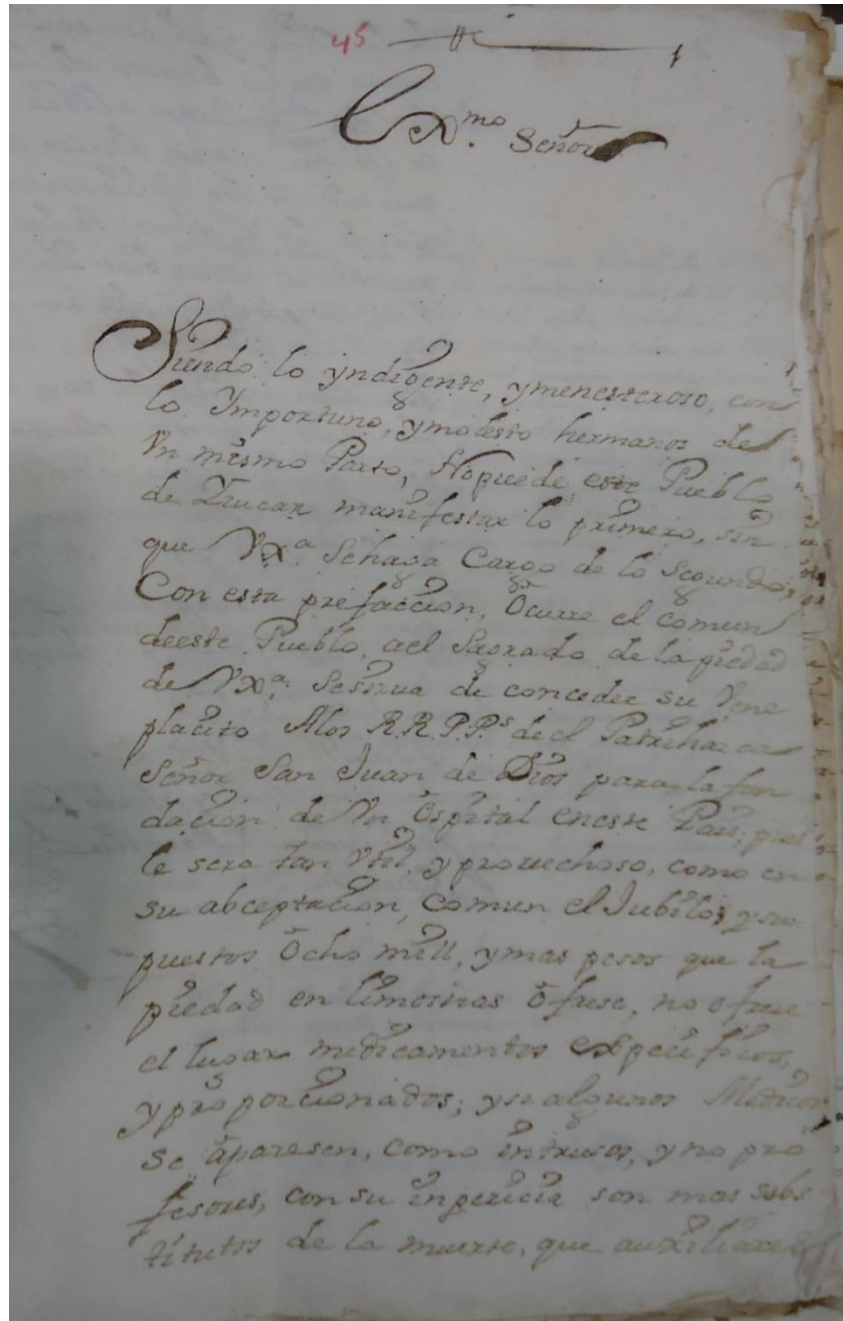 45
Exmo. Señor
Siendo lo yndigente, ymenesteroso, con
lo Ymportuno, ymolesto hermanos de
Vn mismo Parto, Nopuede este Pueblo
de Yzucar manifestar lo primero, sin
que VXa. Sehaga Cargo de lo Segundo;
Con esta prefaccion, Ocurre el comun
deeste Pueblo, ael Sagrado de la piedad
de VXa. Sesirua de conceder su Vene
placito Alos R.R.P.Ps. de el Patriharca
Señor San Juan de Dios para la fun
dacion de Vn Ospital eneste Pais; pues
le sera tan Vtil, y prouechoso, como en
su abceptacion, Comun el Jubilo; ysu
puestos Ocho mill, ymas pesos que la
piedad en limosnas Ofrese, no ofrese
el lugar medicamentos expecificos,
y proporcionados; ysi algunos Medicos
se aparesen, como intrusos, yno pro
fesores, con su inpericia son mas subs
titutos de la muerte, que auxiliares